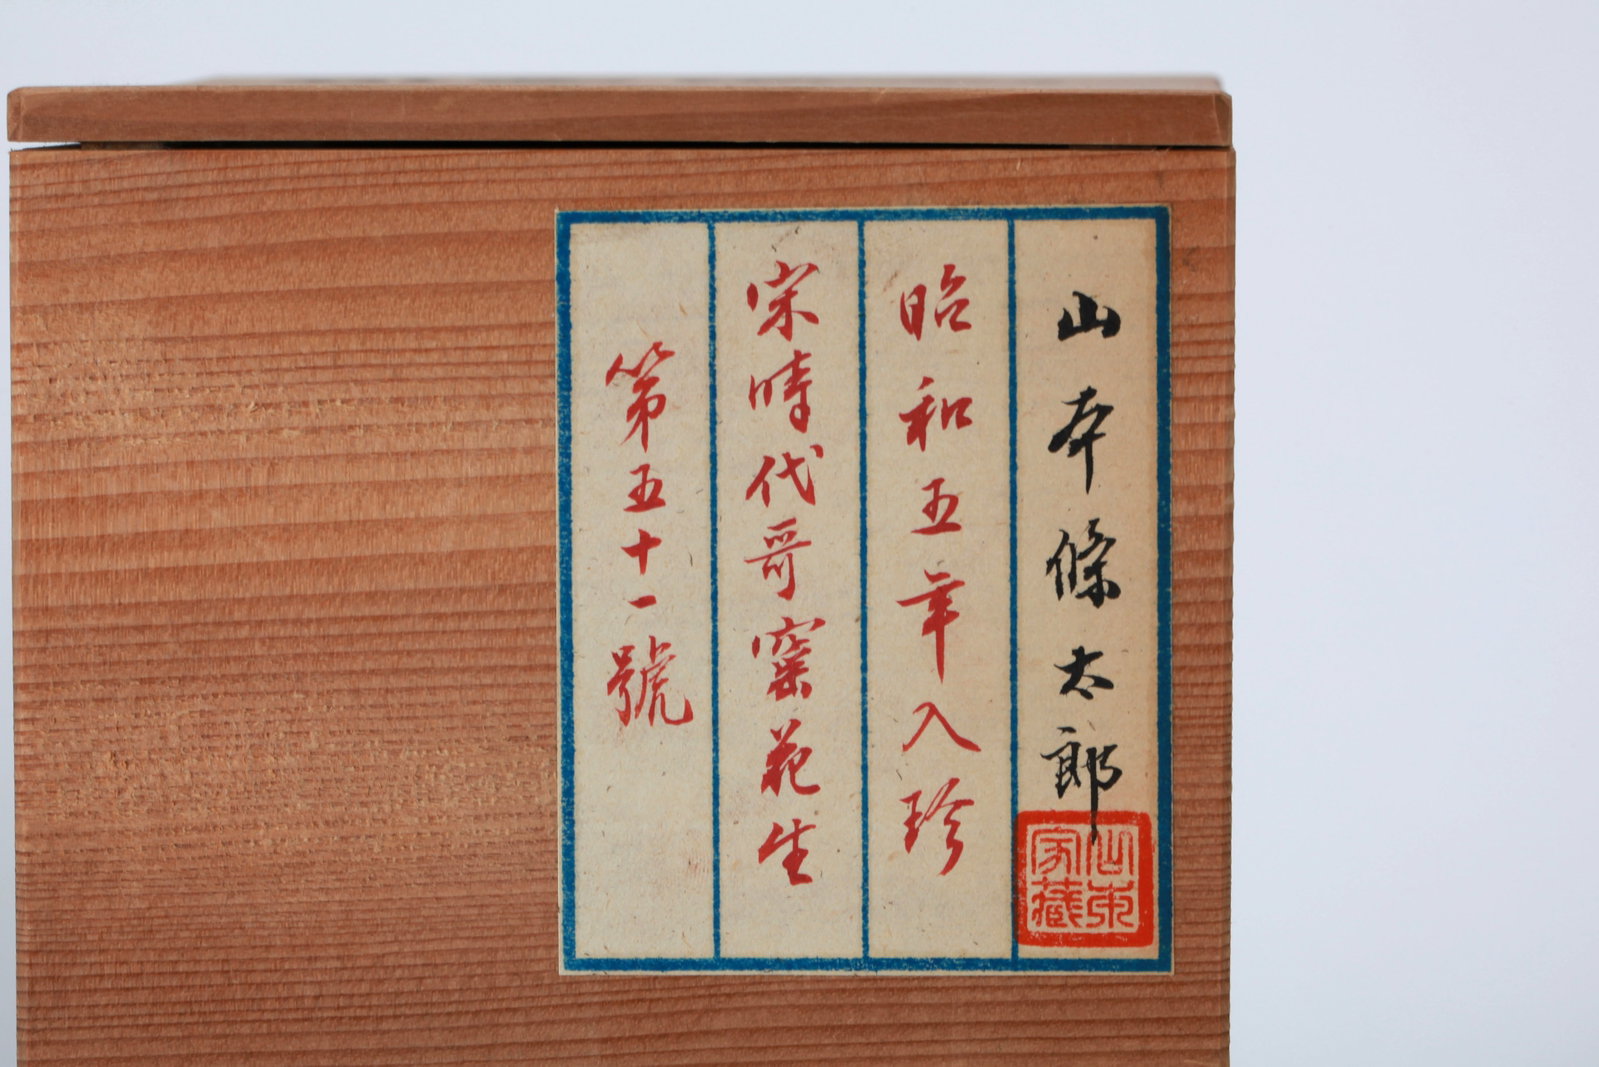 山本條太郎
山本家藏
昭和五年入珍
宋時代哥窯花生
第五十一號